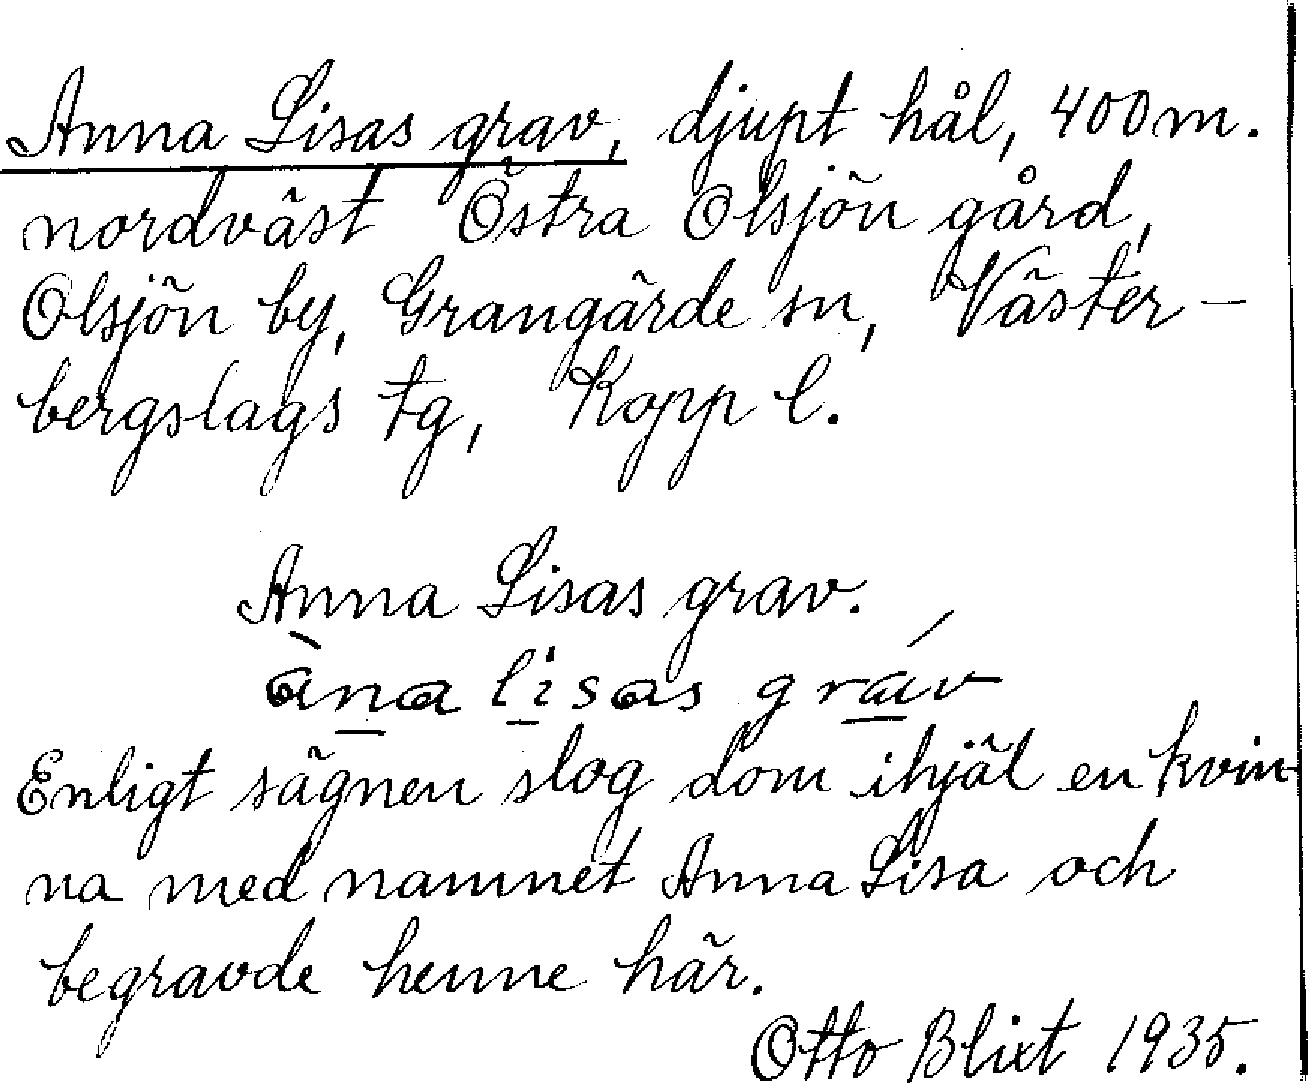 Anna Lisas grav, djupt hål, 400 m.
nordväst Östra Olsjön gård,
Olsjön by, Grangärde sn, Väster-
bergslags tg, Kopp l.
Anna Lisas grav.
àna lisas gráv
Enligt sägnen slog dom ihjäl en kvin-
na med namnet Anna Lisa och
begravde henne här.
Otto Blixt 1935.